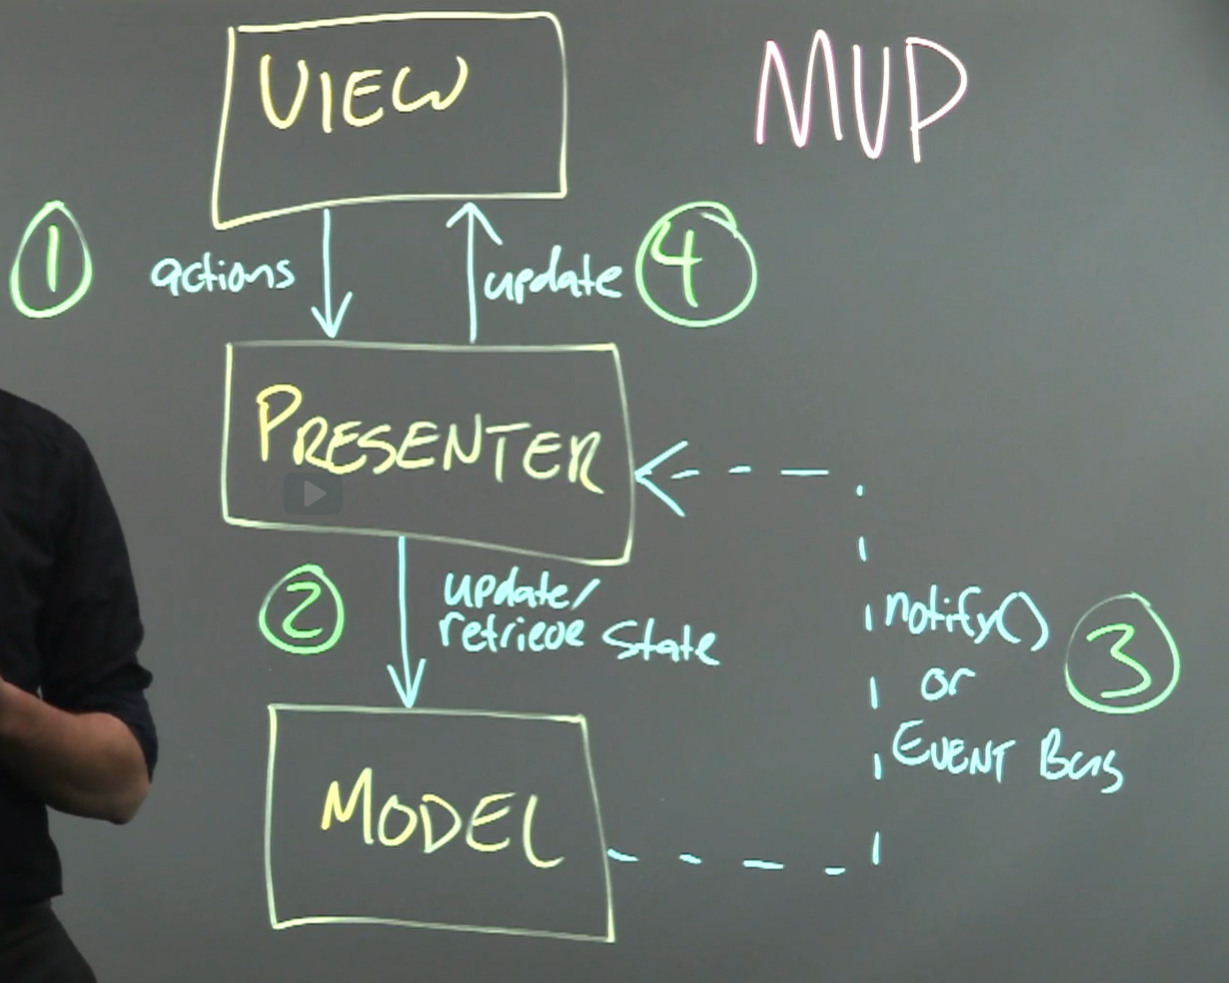 VIEW
MVP
1
actions
update
4
PRESENTER
2
update/
retrieve state
notify()
or
EVENT BUS
3
MODEL